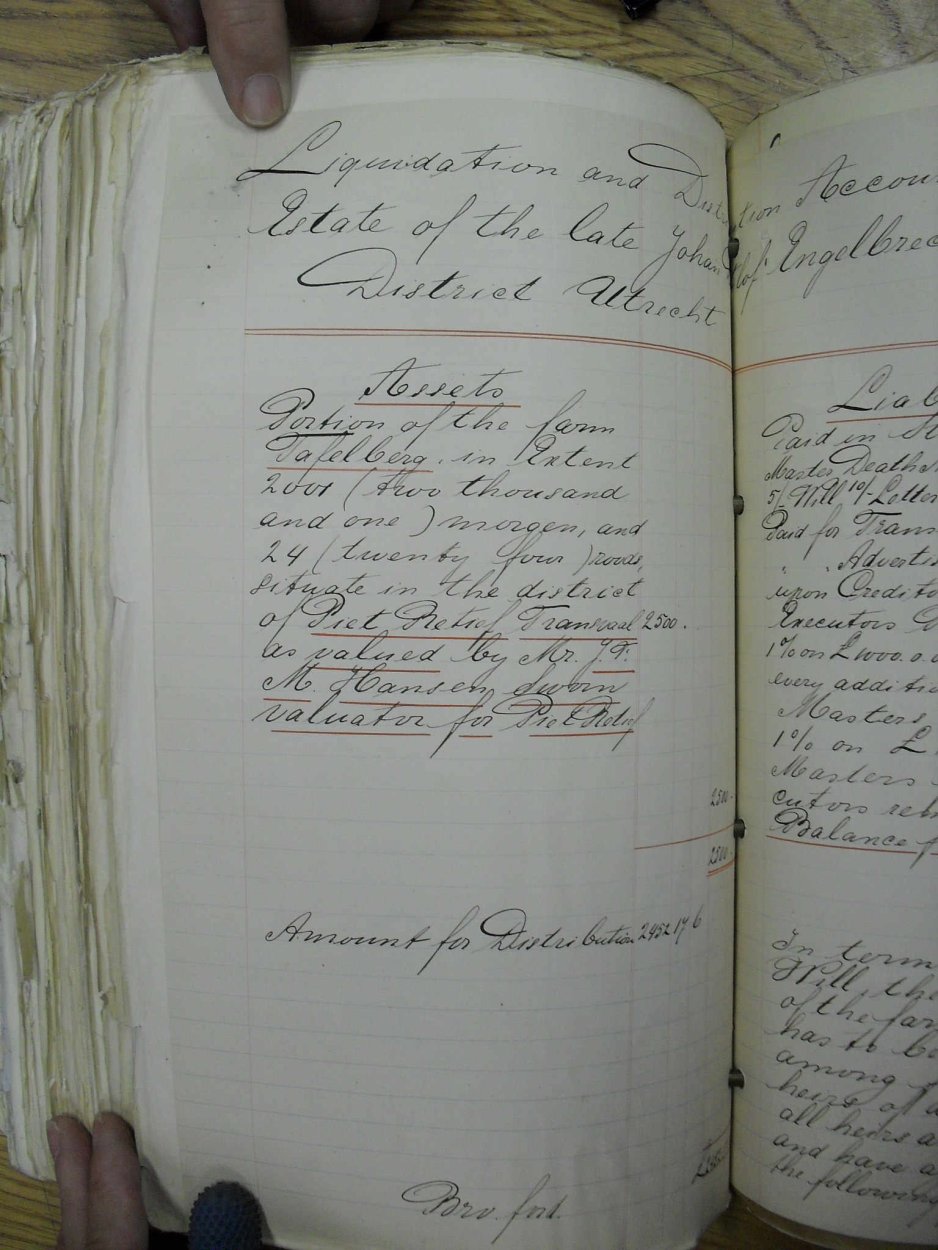 Liquidation and Dist tion Accou
Estate of the late Johan lof Engelbrec
District Utrecht
Assets
Portion of the farm
Tafelberg, in Extent
2001 (two thousand
and one) morgen, and
24 (twenty four) roods,
situate in the district
of Piet Retief Transvaal 2500.
as valued by Mr. J. F.
M. Hansen sworn
valuator for Piet Retief
2500
2500
Amount for Distribution 2452 17 6
Bro. ford.
Liab
Paid in St
Master Death N
5/ Will 10/- Letter
Paid for Trans
" " Advertis
upon Credito
Executors
1% on £1000.0.0
every additio
Masters
1% on £
Masters
cutors rem
Balance f
In term
Will the
of the far
has to be
among
heirs of
all heirs a
and have a
the following